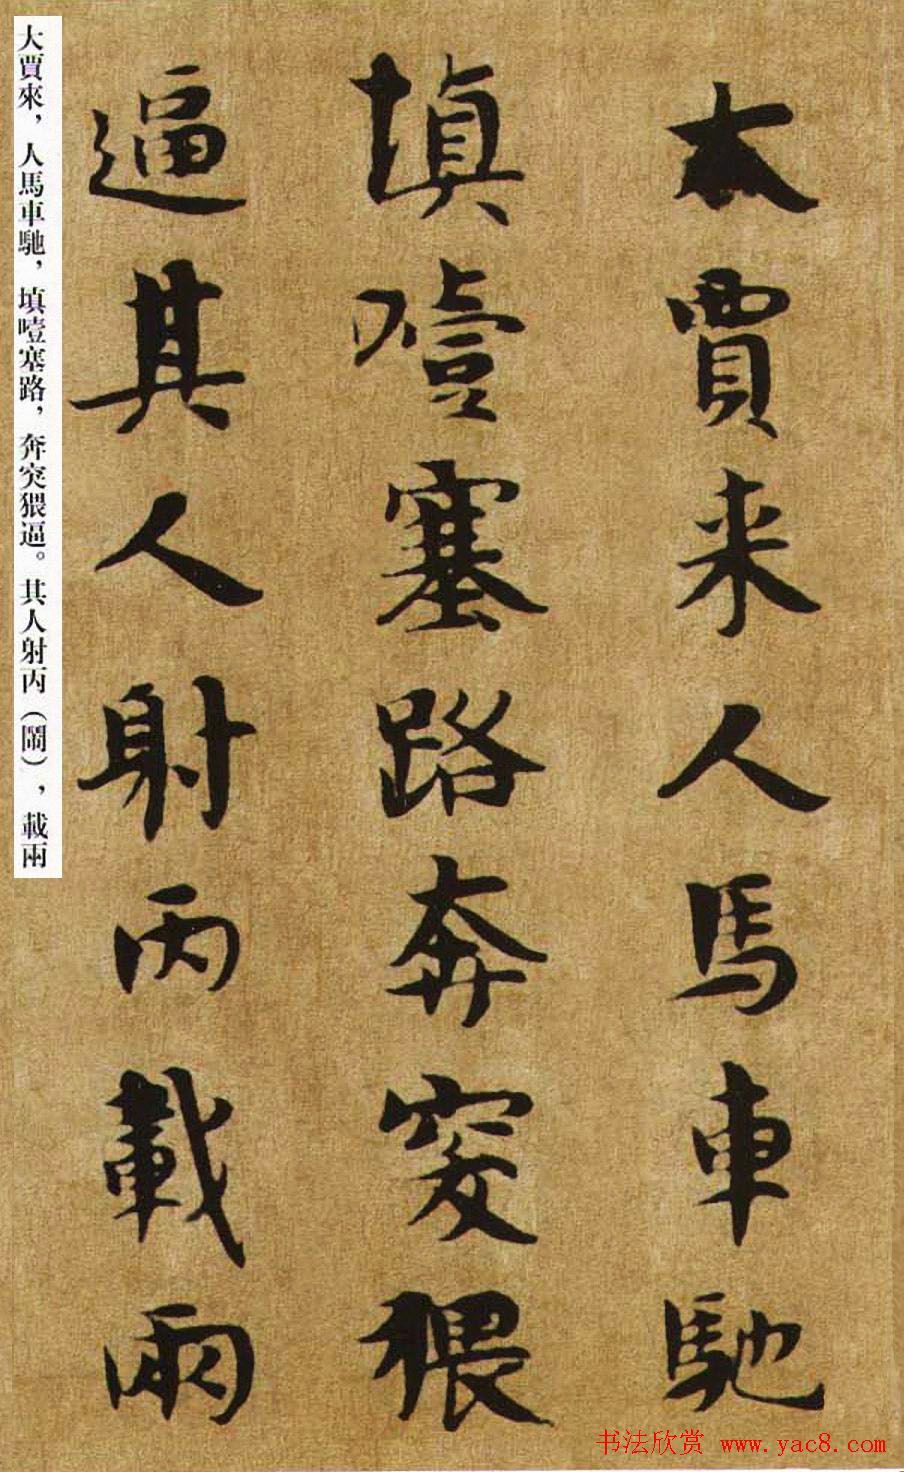 大賈来人馬車馳
填噎塞路奔突猥
逼其人射丙載兩
大賈來，人馬車馳，填噎塞路，奔突猥逼。其人射丙（鬧），載兩
书法欣赏 www.yac8.com